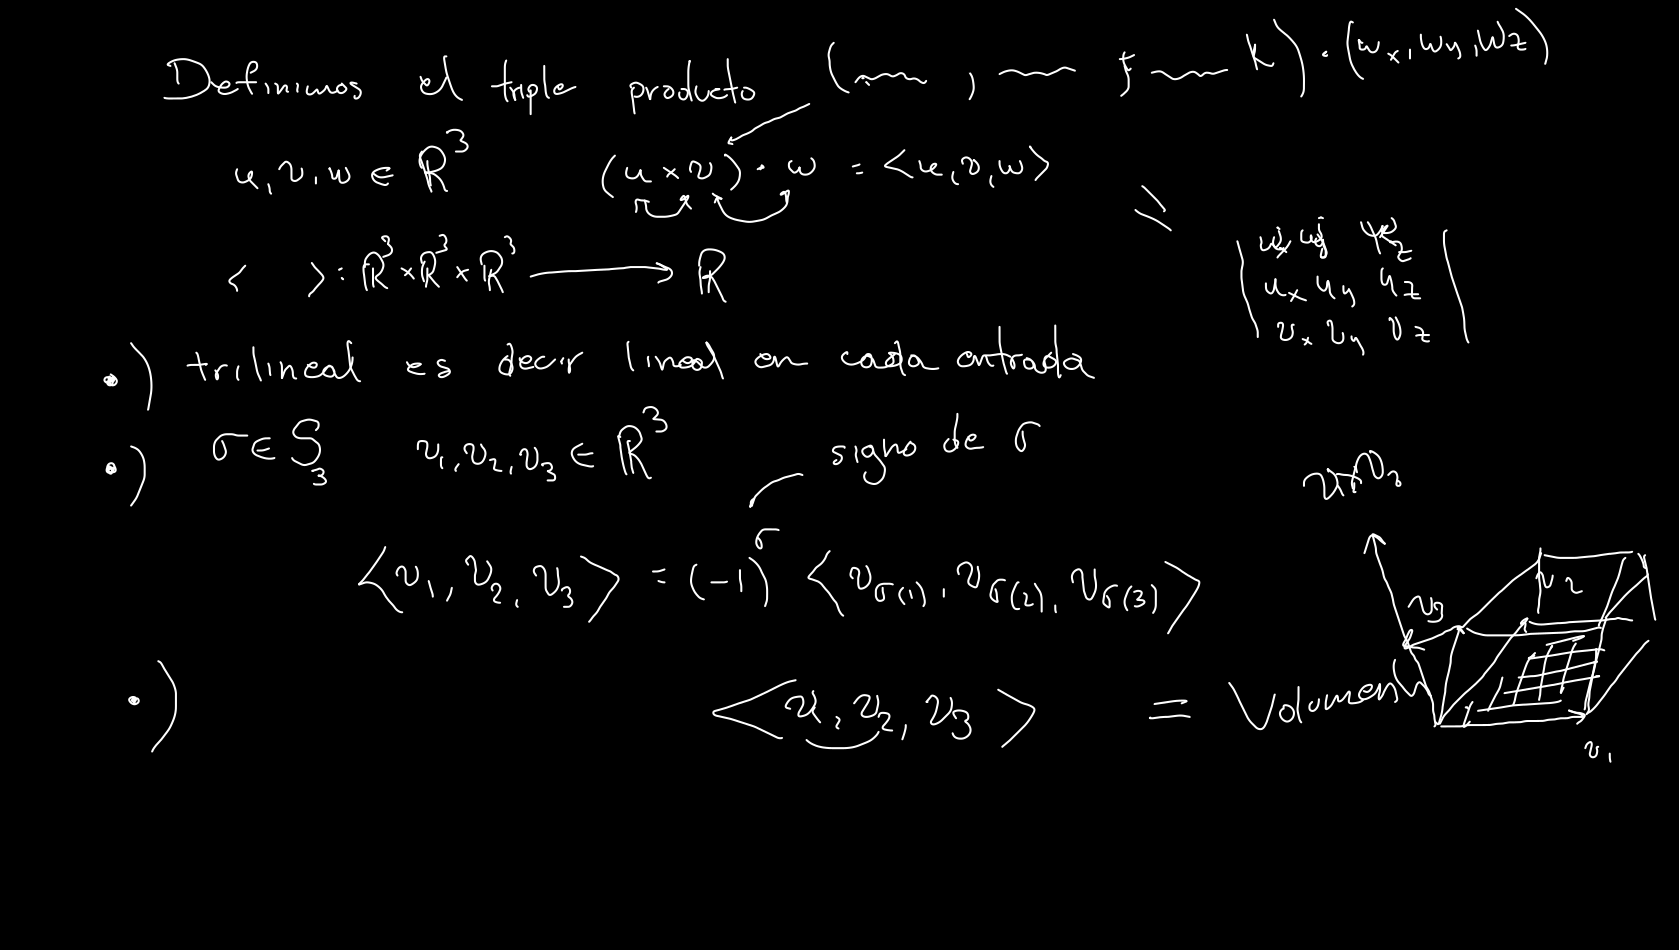 Definimos el triple producto ( , j k) · (wx, wy, wz)
u, v, w ∈ ℝ³ (u × v) · w = <u, v, w>
=
< > : ℝ³ × ℝ³ × ℝ³ → ℝ
| wx wy wz |
| ux uy uz |
| vx vy vz |
•) trilineal es decir lineal en cada entrada
•) σ ∈ S₃ v₁, v₂, v₃ ∈ ℝ³ signo de σ
<v₁, v₂, v₃> = (-1)^σ <v_σ(1), v_σ(2), v_σ(3)>
v₃ v₂
•) <v₁, v₂, v₃> = Volumen
v₁